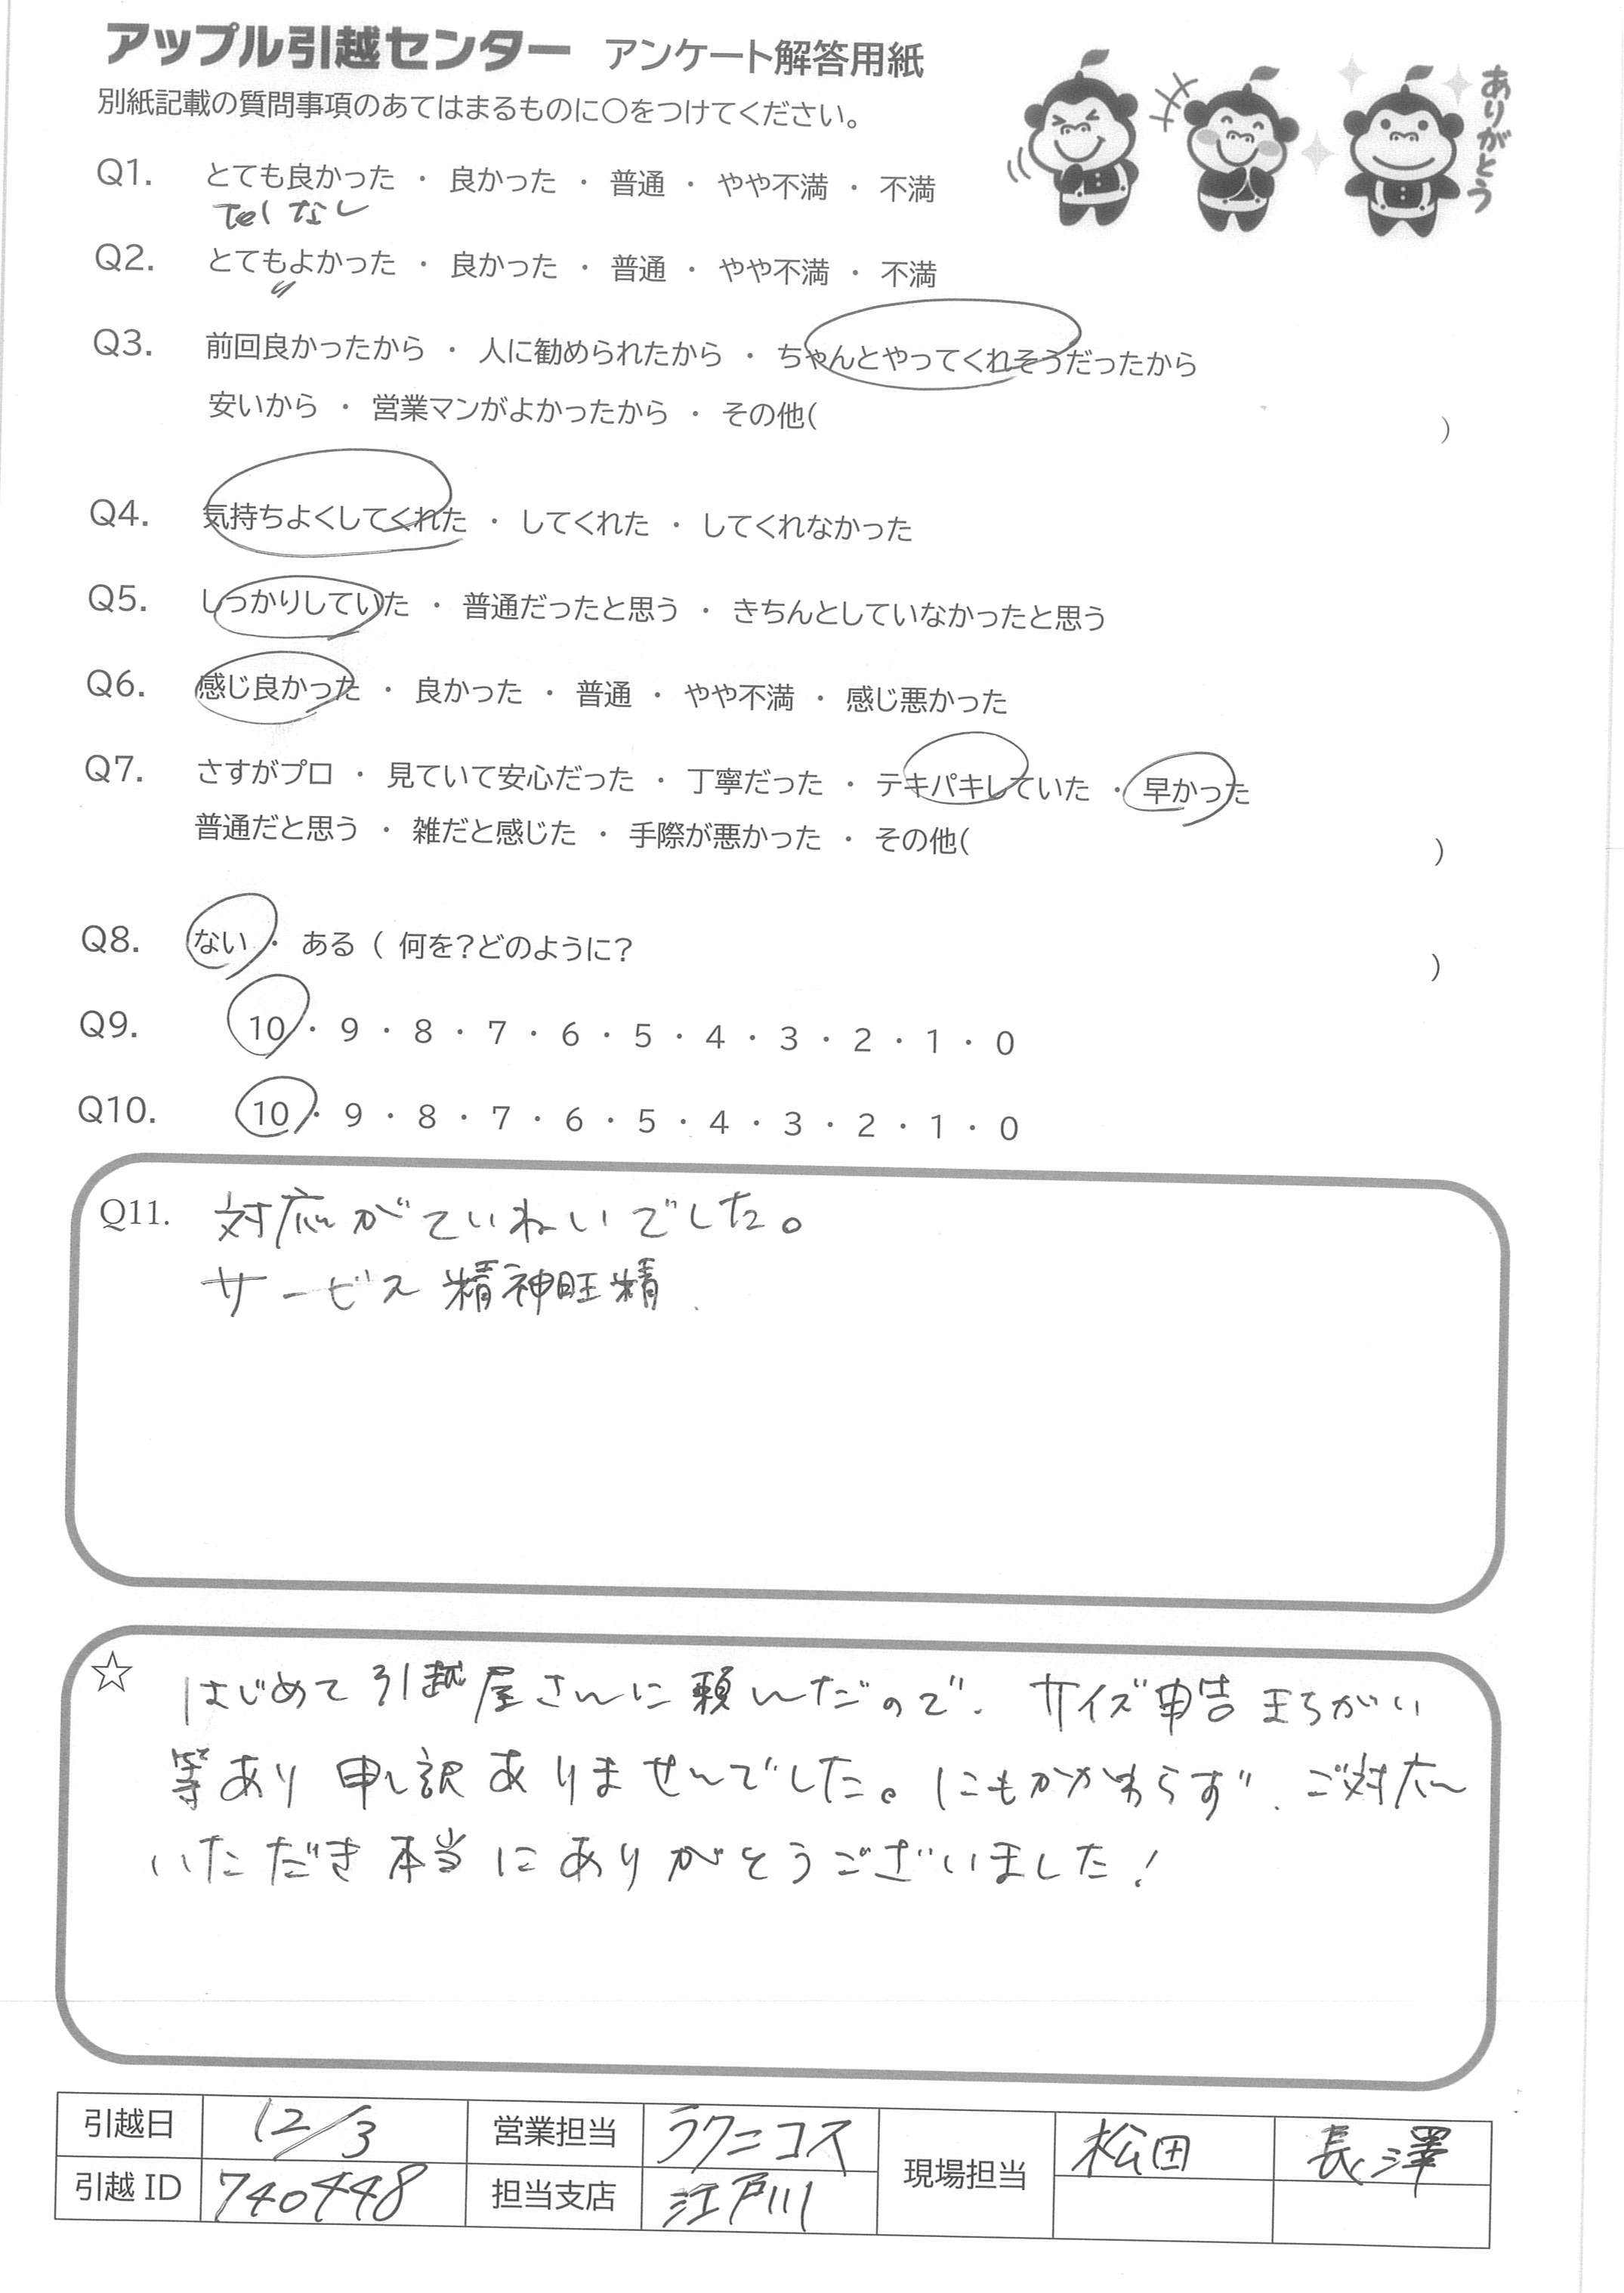 アップル引越センター アンケート解答用紙
別紙記載の質問事項のあてはまるものに○をつけてください。
ありがとう
Q1. とても良かった ・ 良かった ・ 普通 ・ やや不満 ・ 不満
Telなし
Q2. とてもよかった ・ 良かった ・ 普通 ・ やや不満 ・ 不満
〃
Q3. 前回良かったから ・ 人に勧められたから ・ ちゃんとやってくれそうだったから
安いから ・ 営業マンがよかったから ・ その他( )
Q4. 気持ちよくしてくれた ・ してくれた ・ してくれなかった
Q5. しっかりしていた ・ 普通だったと思う ・ きちんとしていなかったと思う
Q6. 感じ良かった ・ 良かった ・ 普通 ・ やや不満 ・ 感じ悪かった
Q7. さすがプロ ・ 見ていて安心だった ・ 丁寧だった ・ テキパキしていた ・ 早かった
普通だと思う ・ 雑だと感じた ・ 手際が悪かった ・ その他( )
Q8. ない ・ ある ( 何を?どのように? )
Q9. 10 ・ 9 ・ 8 ・ 7 ・ 6 ・ 5 ・ 4 ・ 3 ・ 2 ・ 1 ・ 0
Q10. 10 ・ 9 ・ 8 ・ 7 ・ 6 ・ 5 ・ 4 ・ 3 ・ 2 ・ 1 ・ 0
Q11. 対応がていねいでした。
サービス精神旺精.
☆ はじめて引越屋さんに頼んだので、サイズ申告まちがい
等あり申し訳ありませんでした。にもかかわらず、ご対応
いただき本当にありがとうございました!
引越日 12/3 営業担当 ラクニコス 現場担当 松田 長澤
引越 ID 740448 担当支店 江戸川